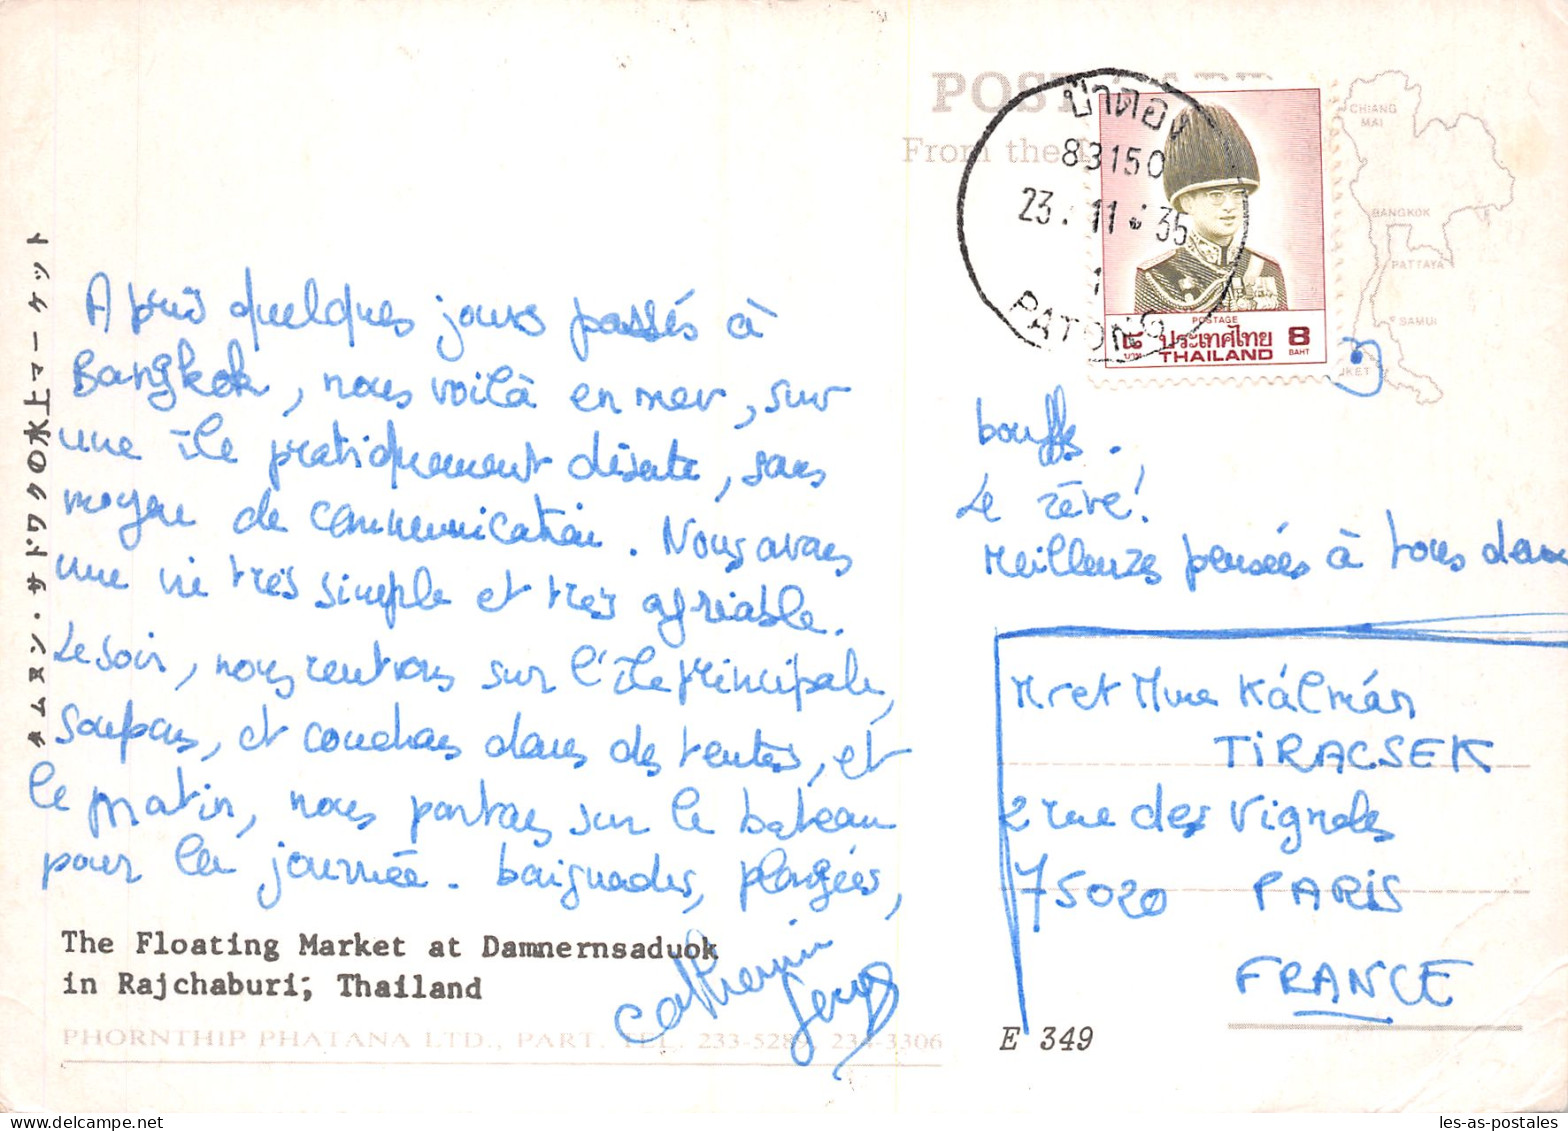 ダムヌン・サドワクの水上マーケット
Après quelques jours passés à
Bangkok, nous voilà en mer, sur
une île pratiquement déserte, sans
moyen de communication. Nous avons
une vie très simple et très agréable.
Le soir, nous rentrons sur l'île principale,
soupons, et couchons dans des tentes, et
le matin, nous partons sur le bateau
pour la journée. baignades, plongées,
The Floating Market at Damnernsaduok
in Rajchaburi; Thailand
Catherine
PHORNTHIP PHATANA LTD., PART. TEL. 233-5289, 234-3306
POST CARD
From the
ป่าตอง
83150
23. 11. 35
1
PATONG
POSTAGE
๘ ประเทศไทย 8
บาท THAILAND BAHT
CHIANG
MAI
BANGKOK
PATTAYA
SAMUI
UKET
bouffe.
Le rêve!
Meilleures pensées à tous deux
Mr et Mme Kálmán
TIRACSEK
2 rue des Vignoles
75020 PARIS
FRANCE
E 349
les-as-postales